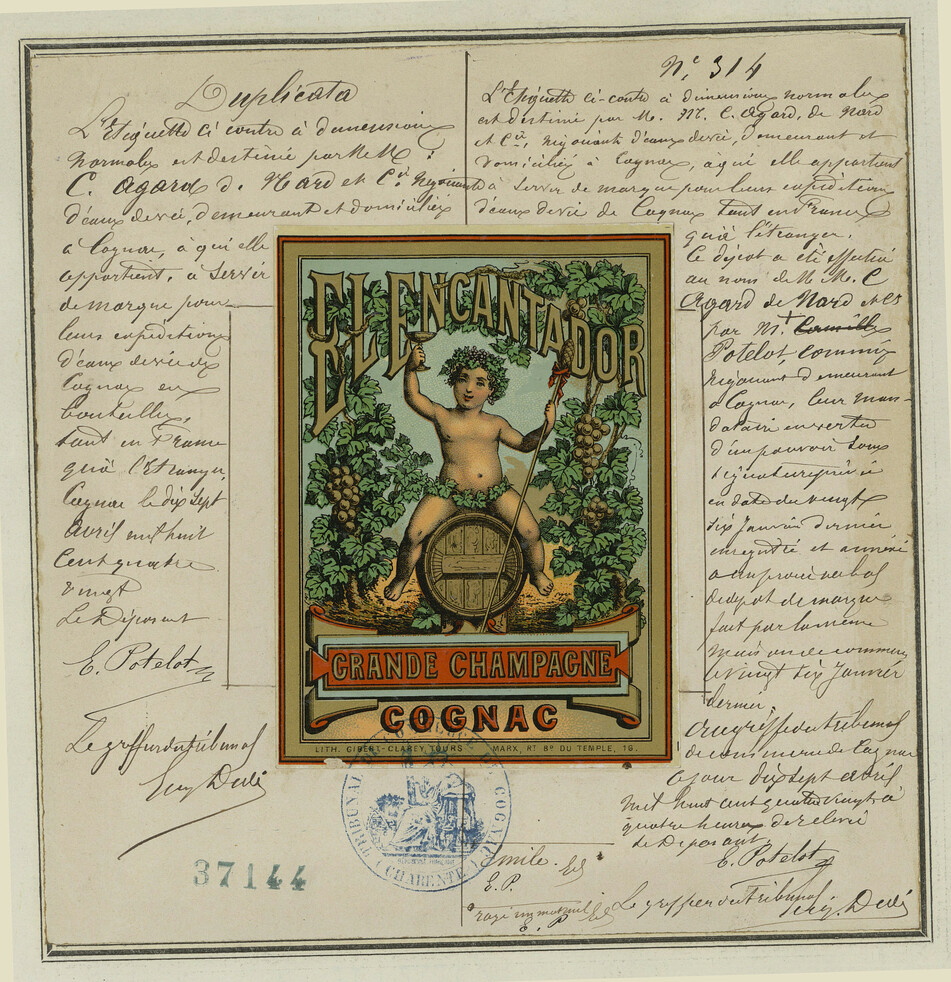 Duplicata
L'Etiquette ci contre à dimensions
normales est destinée par M.M.
C. Agard de Nard et Cie Négociants
d'eaux de vie, demeurant et domiciliés
à Cognac, à qui elle
appartient, à servir
de marque pour
leurs expéditions
d'eaux de vie de
Cognac en
bouteilles,
tant en France
qu'à l'Etranger,
Cognac le dix sept
Avril mil huit
cent quatre
vingt
Le Déposant
E. Potelot
Le greffier du tribunal
N° 314
L'Etiquette ci-contre à dimensions normales
est destinée par M. M. C. Agard, de Nard
et Cie, négociants d'eaux de vie, demeurant et
domiciliés à Cognac, à qui elle appartient
à servir de marque pour leurs expéditions
d'eaux de vie de Cognac tant en France
qu'à l'étranger.
Le dépôt a été effectué
au nom de M. M. C
Agard de Nard et Cie
par M.
Potelot, commis
négociant demeurant
à Cognac, leur man-
dataire en vertu
d'un pouvoir sous
signature privée
en date du vingt
six Janvier dernier
enregistré et annexé
a un procès verbal
de dépôt de marque
fait par le même
mais en ce commun
le vingt six Janvier
dernier,
Au greffe du tribunal
de commerce de Cognac
ce jour dix sept avril
mil huit cent quatre vingt à
quatre heures de relevée
Le Déposant,
E. Potelot
Le greffier du tribunal
EL ENCANTADOR
GRANDE CHAMPAGNE
COGNAC
LITH. CIBERT-CLAREY, TOURS MARX, RT Bd DU TEMPLE, 16.
TRIBUNAL DE COMMERCE DE COGNAC
CHARENTE
37144
E.P.
E. P